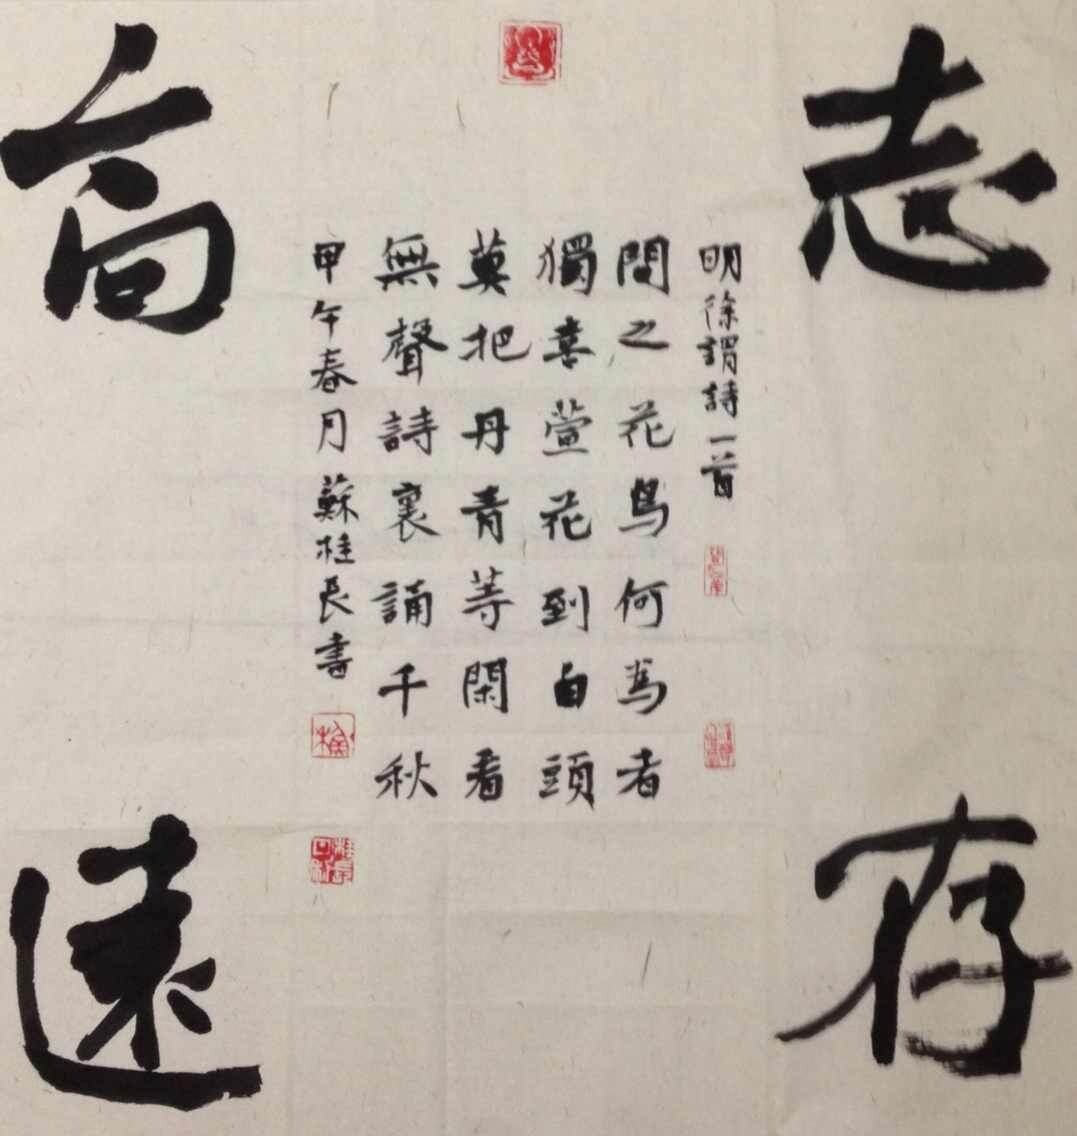 志存
明徐謂詩一首
問之花鳥何為者
獨喜萱花到白頭
莫把丹青等閑看
無聲詩裏誦千秋
甲午春月蘇桂長書
高遠